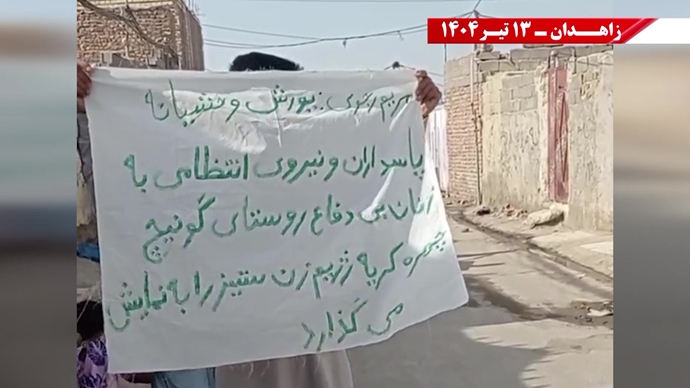 زاهدان - ۱۳ تیر ۱۴۰۴
مریم رجوی: یورش وحشیانه
پاسداران و نیروی انتظامی به
زنان بی دفاع روستای گونیچ
چهره کریه رژیم زن ستیز را به نمایش
می گذارد